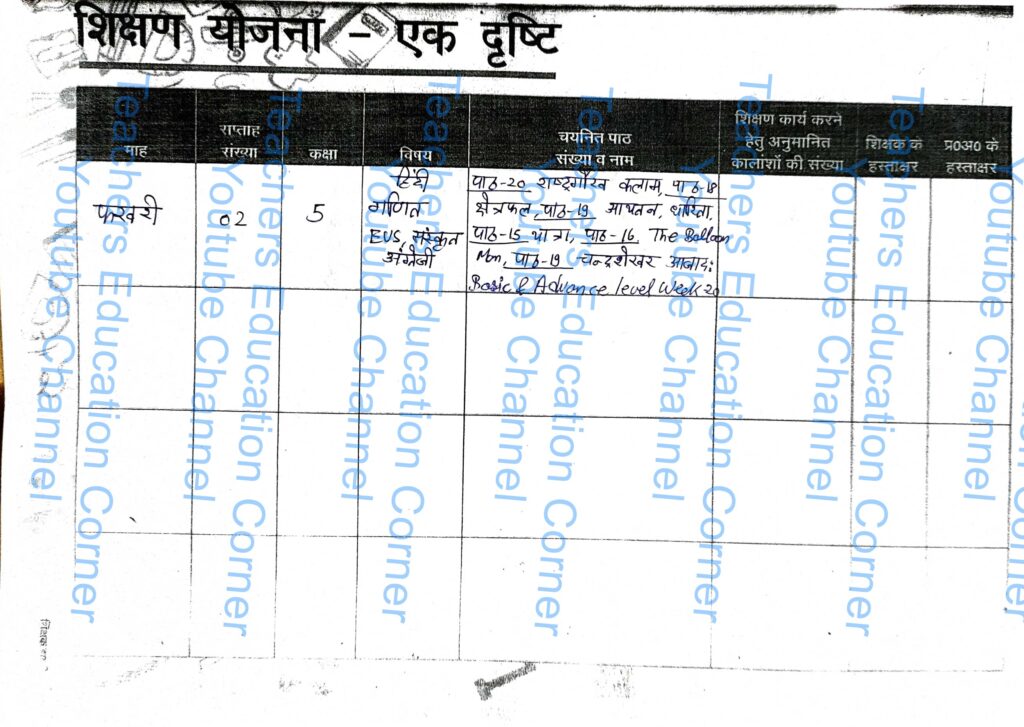 शिक्षण योजना - एक दृष्टि
माह
सप्ताह
संख्या
कक्षा
विषय
चयनित पाठ
संख्या व नाम
शिक्षण कार्य करने
हेतु अनुमानित
कालांशों की संख्या
शिक्षक के
हस्ताक्षर
प्र०अ० के
हस्ताक्षर
फरवरी
02
5
हिंदी
गणित
EVS, संस्कृत
अंग्रेजी
पाठ-20 राष्ट्रगौरव कलाम, पाठ-18
क्षेत्रफल, पाठ-19 आयतन, धारिता,
पाठ-15 यात्रा, पाठ-16, The Balloon
Man, पाठ-19 चन्द्रशेखर आजाद:
Basic & Advance level Week 20
Teachers Education Corner
Youtube Channel
Teachers Education Corner
Youtube Channel
Teachers Education Corner
Youtube Channel
Teachers Education Corner
Youtube Channel
Teachers Education Corner
Youtube Channel
Teachers Education Corner
Youtube Channel
Teachers Education Corner
Youtube Channel